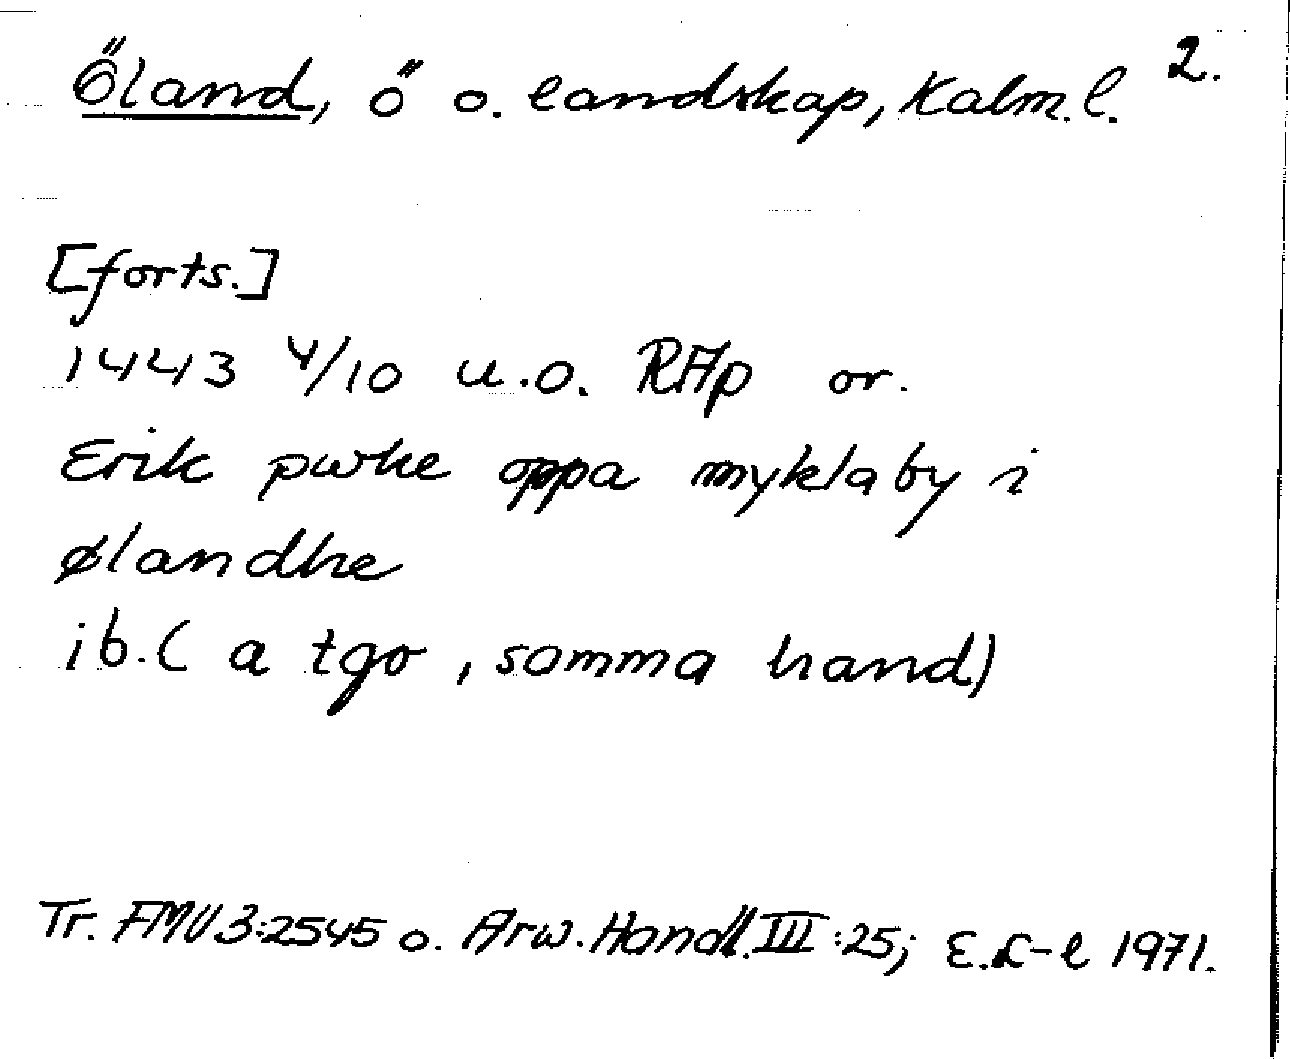 Öland, ö o. landskap, Kalm. l. 2.
[forts.]
1443 4/10 u.o. RAp or.
Erik pwke oppa myklaby i
ølandhe
ib. ( a tgo , samma hand)
Tr. FMU 3:2545 o. Arw. Handl. III :25; E.L-l 1971.